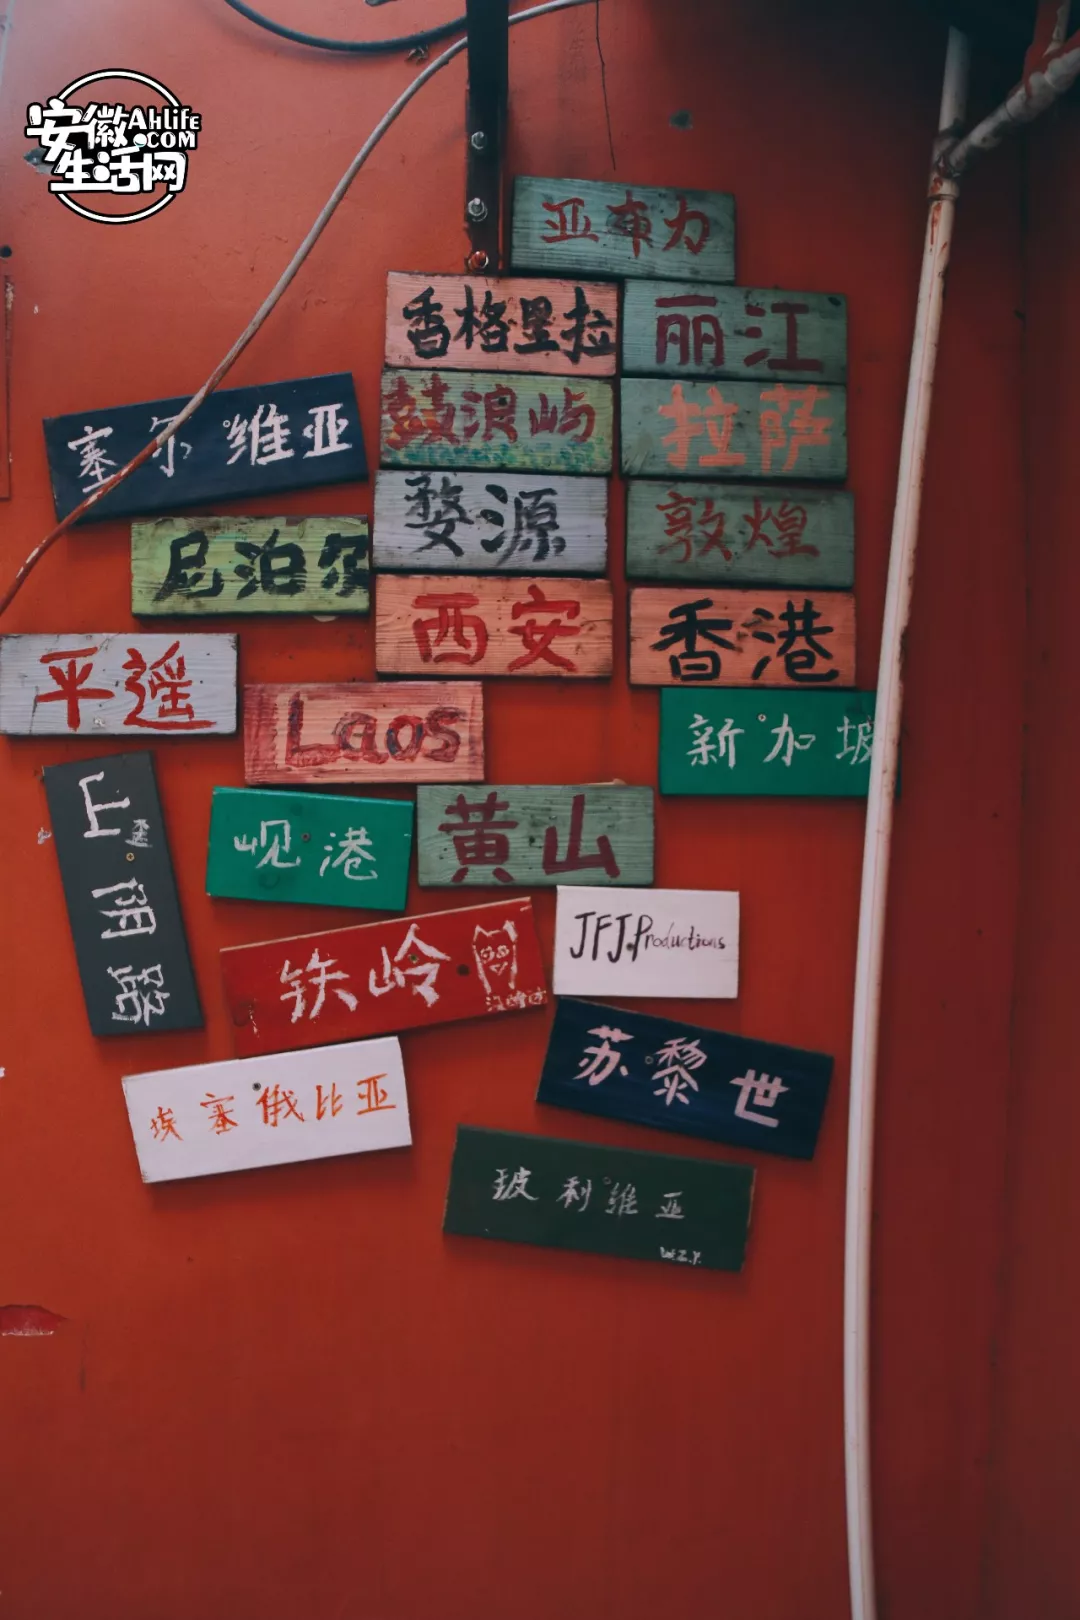 安徽
AHLIFE
.COM
生活网
亚布力
香格里拉
丽江
塞尔维亚
鼓浪屿
拉萨
婺源
敦煌
尼泊尔
西安
香港
平遥
Laos
新加坡
岘港
黄山
铁岭
JFJ.Productions
苏黎世
埃塞俄比亚
玻利维亚
W.Z.Y.